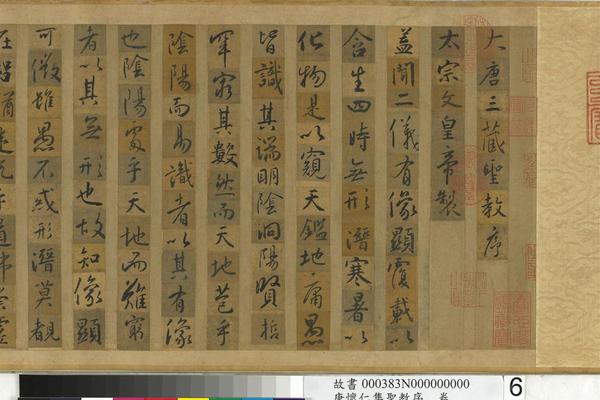 大唐三藏聖教序
太宗文皇帝製
蓋聞二儀有像顯覆載以
含生四時無形潛寒暑以
化物是以窺天鑑地庸愚
皆識其端明陰洞陽賢哲
罕窮其數然而天地苞乎
陰陽而易識者以其有像
也陰陽處乎天地而難窮
者以其無形也故知像顯
可徵雖愚不惑形潛莫覩
故書 000383N000000000
唐懷仁集聖教序 卷
6